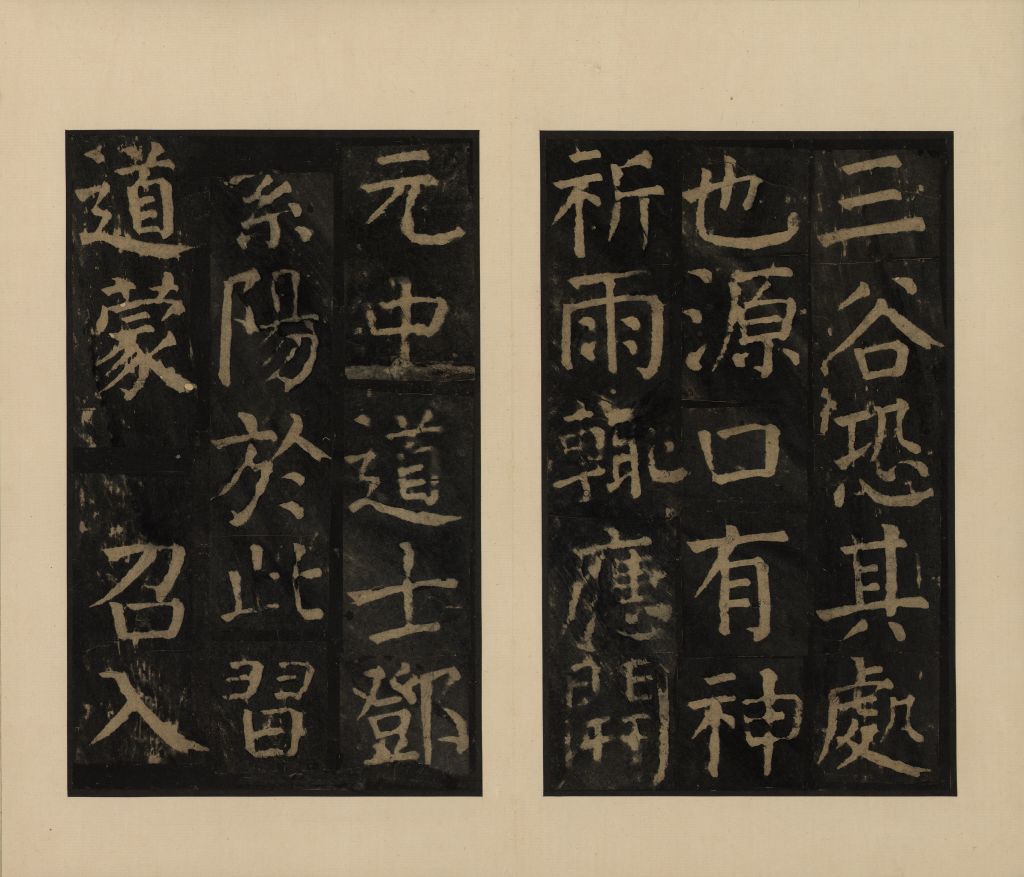 三谷恐其處
也源口有神
祈雨輒應開
元中道士鄧
紫陽於此習
道蒙召入